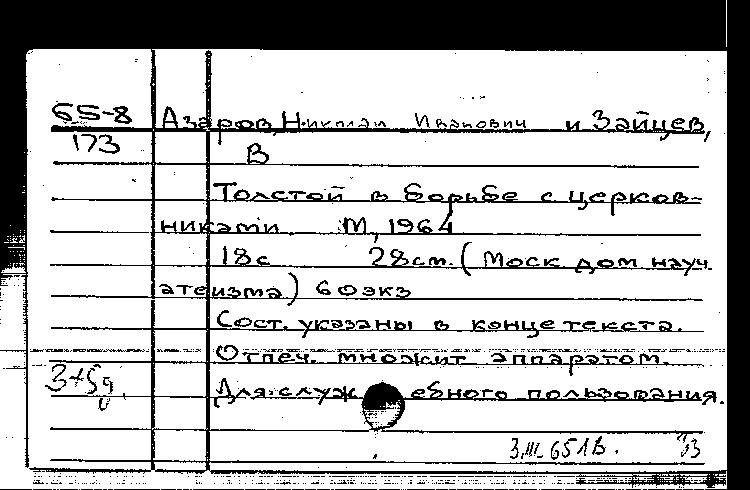 65-8 Азаров, Николай Иванович и Зайцев,
173 В
Толстой в борьбе с церков-
никами. М, 1964
18с 28см. (Моск дом науч
атеизма) 60экз
Сост. указаны в конце текста.
Отпеч. множит аппаратом.
Для служебного пользования.
3.III 65 1В.